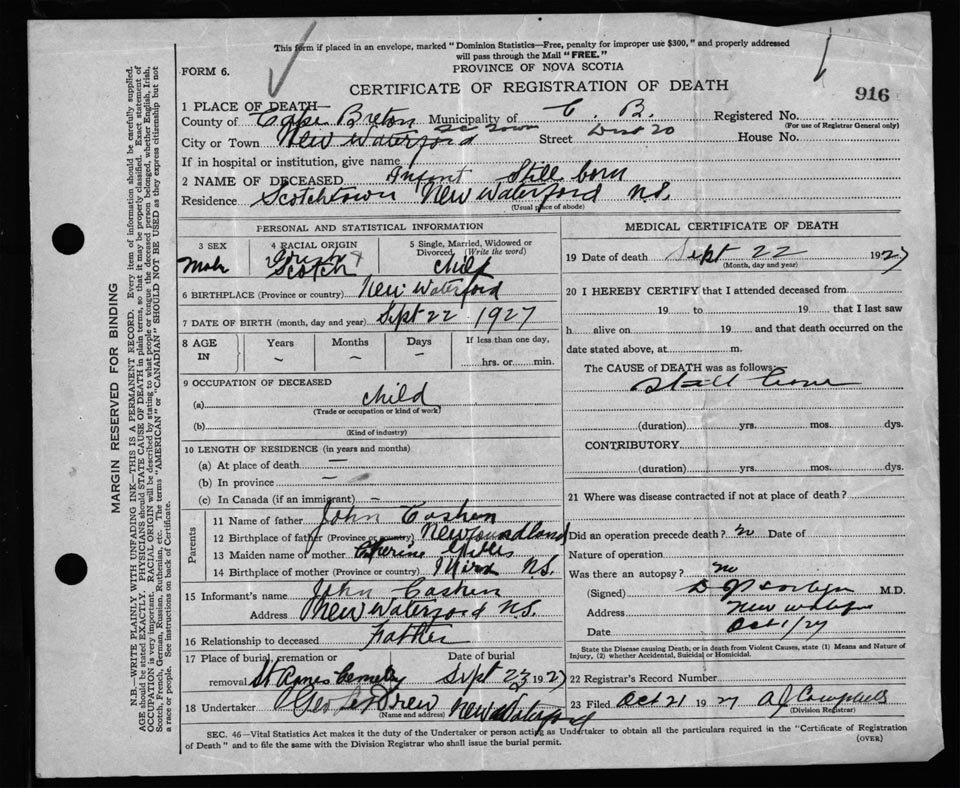 This form if placed in an envelope, marked "Dominion Statistics—Free, penalty for improper use $300," and properly addressed
will pass through the Mail "FREE."
FORM 6.
PROVINCE OF NOVA SCOTIA
CERTIFICATE OF REGISTRATION OF DEATH
916
1 PLACE OF DEATH—
County of Cape Breton Municipality of C. B. Registered No.
(For use of Registrar General only)
City or Town New Waterford Street Dist 20 House No.
If in hospital or institution, give name
2 NAME OF DECEASED Infant Still born
Residence Scotchtown New Waterford N.S.
(Usual place of abode)
PERSONAL AND STATISTICAL INFORMATION
3 SEX Male
4 RACIAL ORIGIN Irish & Scotch
5 Single, Married, Widowed or Divorced (Write the word) child
6 BIRTHPLACE (Province or country) New Waterford
7 DATE OF BIRTH (month, day and year) Sept 22 1927
8 AGE IN Years Months Days If less than one day,
~ ~ ~ hrs. or min.
9 OCCUPATION OF DECEASED
(a) child
(Trade or occupation or kind of work)
(b)
(Kind of industry)
10 LENGTH OF RESIDENCE (in years and months)
(a) At place of death —
(b) In province —
(c) In Canada (if an immigrant) —
Parents
11 Name of father John Cashen
12 Birthplace of father (Province or country) Newfoundland
13 Maiden name of mother Catherine Gillis
14 Birthplace of mother (Province or country) Mira N.S.
15 Informant's name John Cashen
Address New Waterford N.S.
16 Relationship to deceased Father
17 Place of burial, cremation or Date of burial
removal St Agnes Cemetery Sept 23 1927
18 Undertaker Geo New Waterford
(Name and address)
MEDICAL CERTIFICATE OF DEATH
19 Date of death Sept 22 1927
(Month, day and year)
20 I HEREBY CERTIFY that I attended deceased from
19 to 19 that I last saw
h alive on 19 and that death occurred on the
date stated above, at m.
The CAUSE of DEATH was as follows:
Still born
(duration) yrs. mos. dys.
CONTRIBUTORY
(duration) yrs. mos. dys.
21 Where was disease contracted if not at place of death?
Did an operation precede death? no Date of
Nature of operation
Was there an autopsy? no
(Signed) M.D.
Address New Waterford
Date Oct 1/27
State the Disease causing Death, or in death from Violent Causes, state (1) Means and Nature of
Injury, (2) whether Accidental, Suicidal or Homicidal.
22 Registrar's Record Number
23 Filed Oct 21 1927 A J Campbell
(Division Registrar)
SEC. 46—Vital Statistics Act makes it the duty of the Undertaker or person acting as Undertaker to obtain all the particulars required in the "Certificate of Registration
of Death" and to file the same with the Division Registrar who shall issue the burial permit.
(OVER)
MARGIN RESERVED FOR BINDING
N.B.—WRITE PLAINLY WITH UNFADING INK—THIS IS A PERMANENT RECORD. Every item of information should be carefully supplied.
AGE should be stated EXACTLY. PHYSICIANS should STATE CAUSE OF DEATH in plain terms, so that it may be properly classified. Exact statement of
OCCUPATION is very important. RACIAL ORIGIN will be described by stating to what people or tongue the deceased person belonged, whether English, Irish,
Scotch, French, German, Russian, Ruthenian, etc. The terms "AMERICAN" or "CANADIAN" SHOULD NOT BE USED as they express citizenship but not
a race or people. See instructions on back of Certificate.